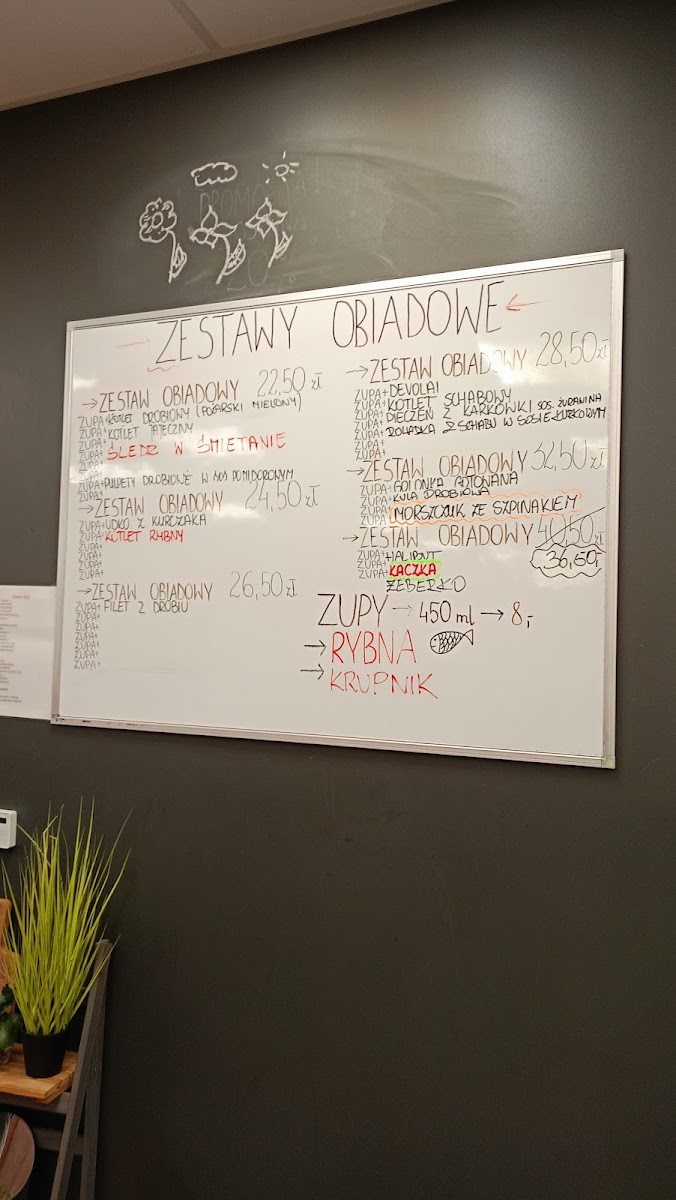 ZESTAWY OBIADOWE
→ZESTAW OBIADOWY 22,50 zł
ZUPA+KOTLET DROBIOWY (POŻARSKI MIELONY)
ZUPA+KOTLET JAJECZNY
ZUPA+
ZUPA+ŚLEDŹ W ŚMIETANIE
ZUPA+
ZUPA+PULPETY DROBIOWE W SOS POMIDOROWYM
ZUPA+
→ZESTAW OBIADOWY 24,50 zł
ZUPA+UDKO Z KURCZAKA
ZUPA+KOTLET RYBNY
ZUPA+
ZUPA+
ZUPA+
→ZESTAW OBIADOWY 26,50 zł
ZUPA+FILET Z DROBIU
ZUPA+
ZUPA+
ZUPA+
ZUPA+
ZUPA+
→ZESTAW OBIADOWY 28,50 zł
ZUPA+DEVOLAI
ZUPA+KOTLET SCHABOWY
ZUPA+PIECZEŃ Z KARKÓWKI SOS. ŻURAWINA
ZUPA+ROLADKA Z SCHABU W SOSIE KURKOWYM
ZUPA+
ZUPA+
→ZESTAW OBIADOWY 32,50 zł
ZUPA+GOLONKA GOTOWANA
ZUPA+KULA DROBIOWA
ZUPA+MORSZCZUK ZE SZPINAKIEM
→ZESTAW OBIADOWY 40,50 zł
ZUPA+HALIBUT 36,50,-
ZUPA+KACZKA
ZUPA+
ŻEBERKO
ZUPY → 450 ml → 8,-
→ RYBNA
→ KRUPNIK